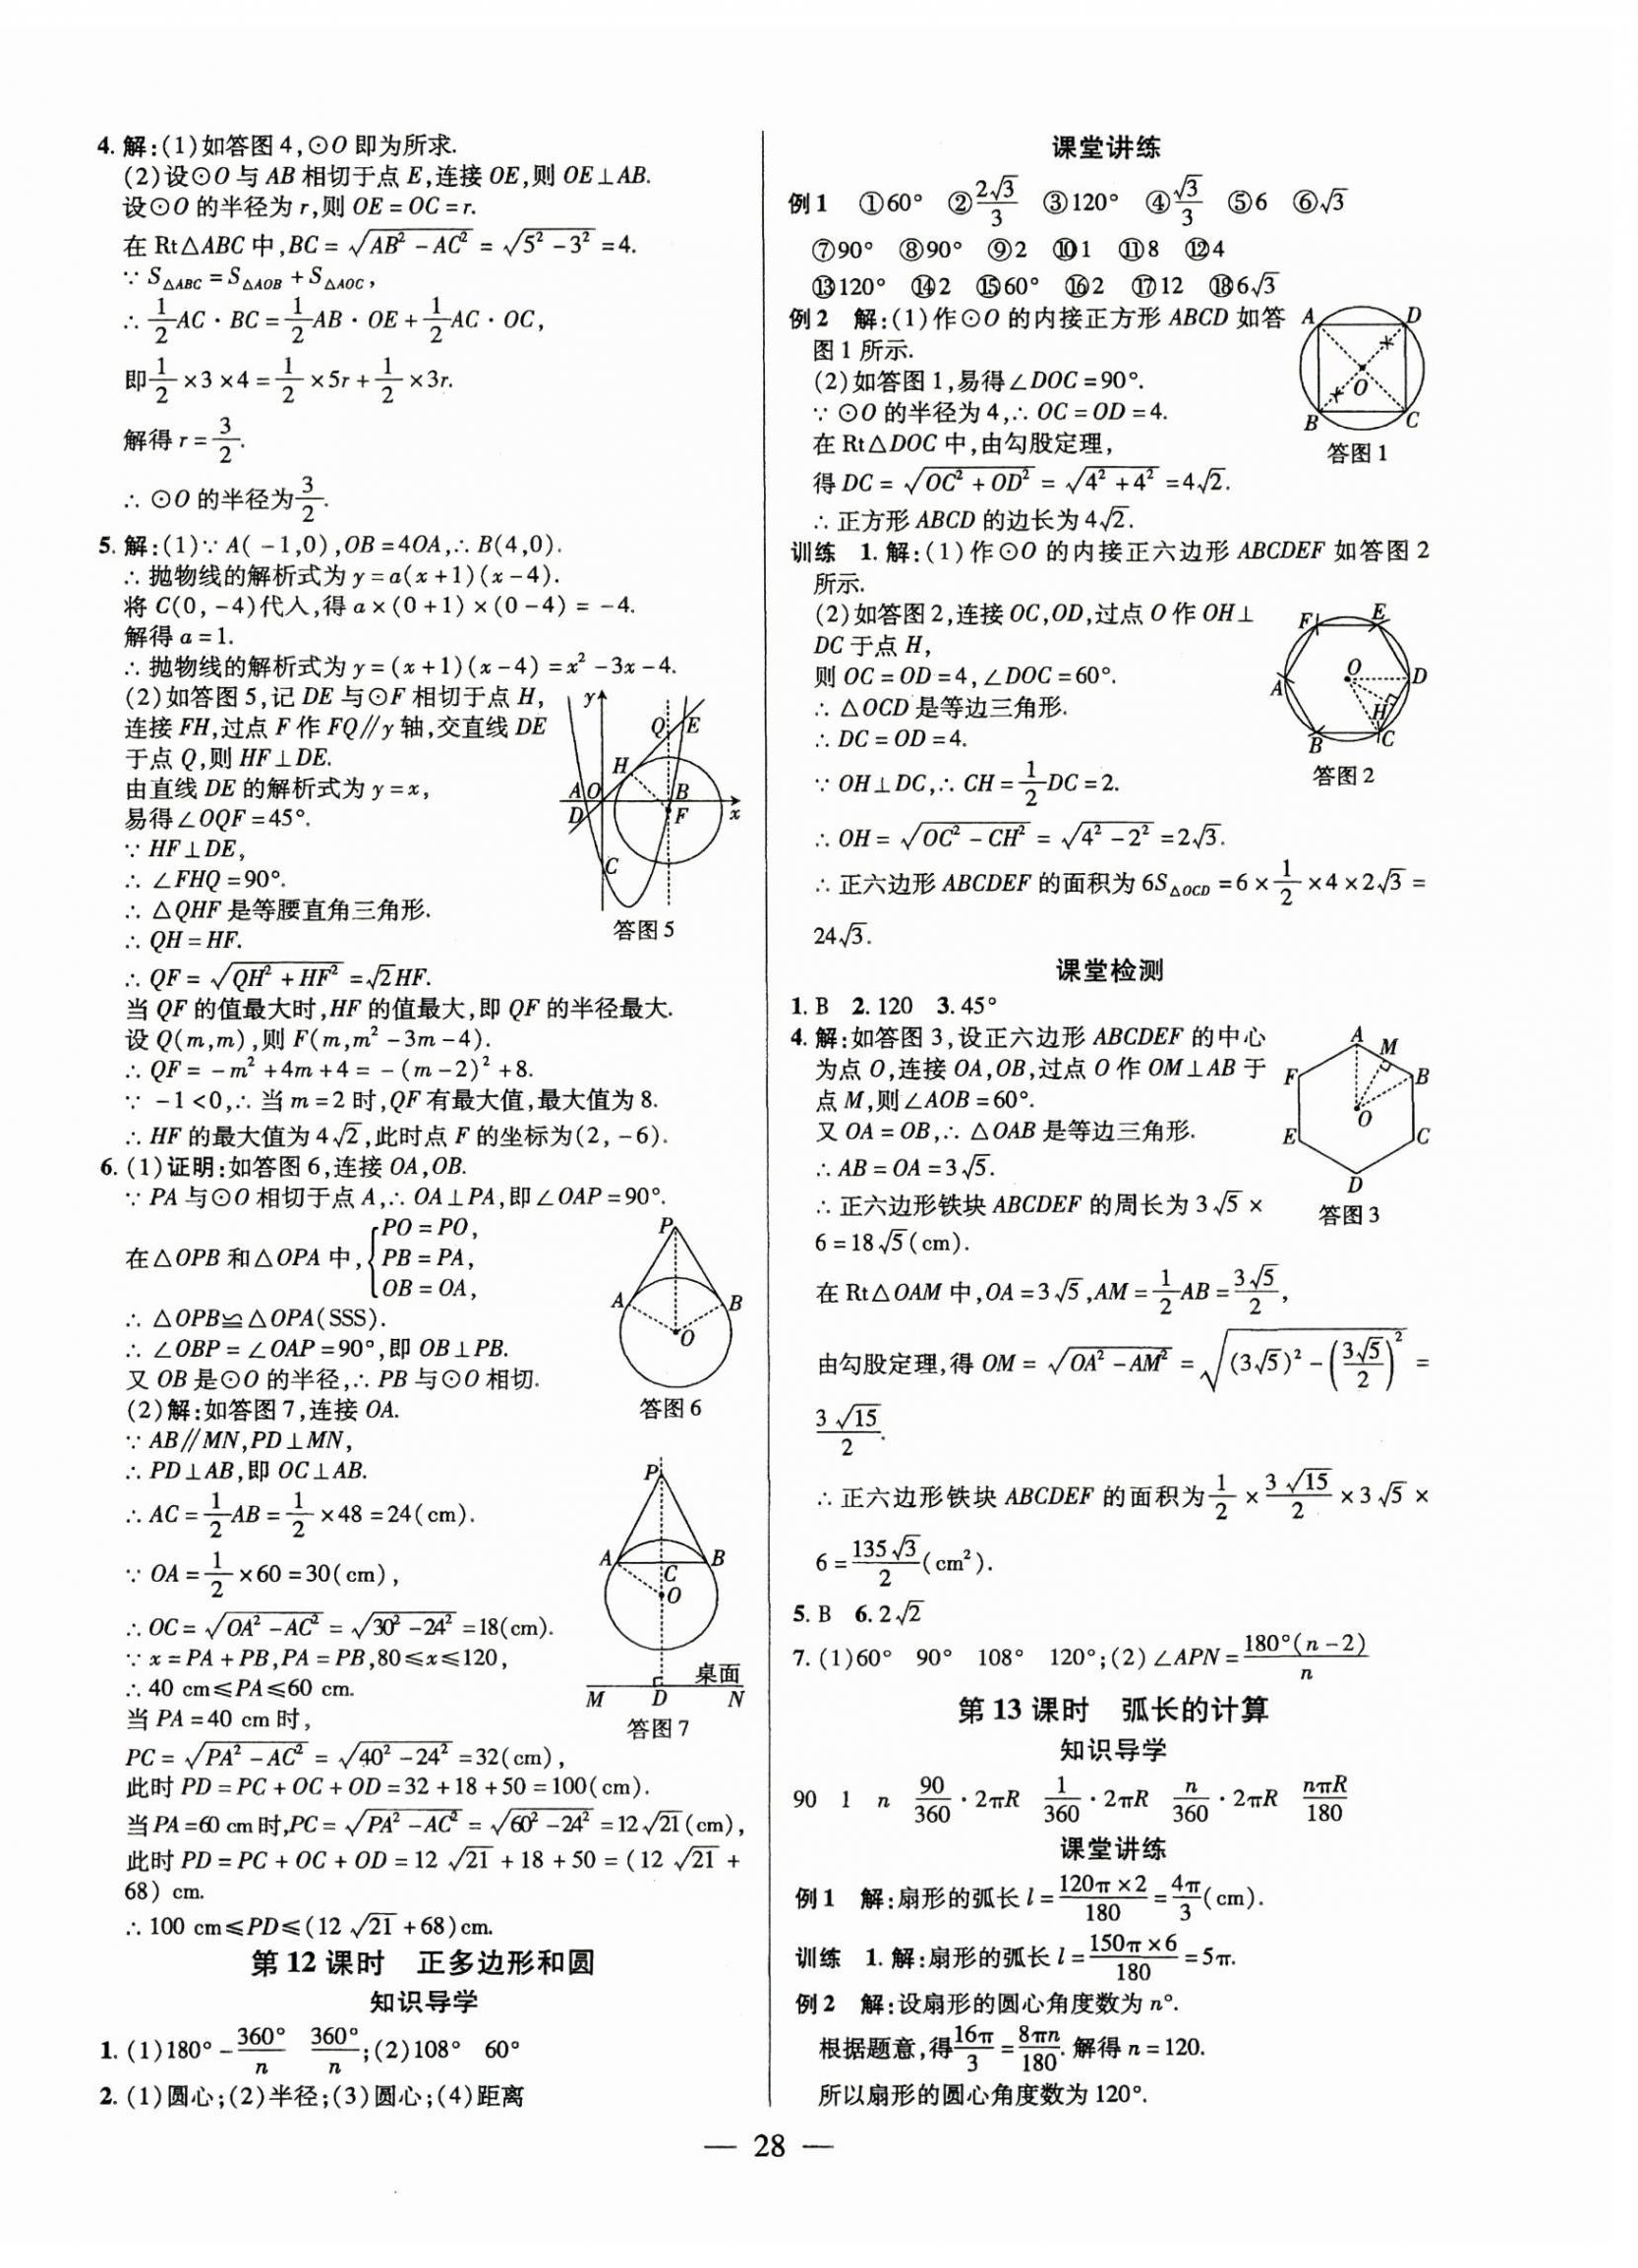 4. 解:(1)如答图4,⊙O即为所求.
(2)设⊙O与AB相切于点E,连接OE,则OE⊥AB.
设⊙O的半径为r,则OE=OC=r.
在Rt△ABC中,BC=√(AB²-AC²)=√(5²-3²)=4.
∵S△ABC=S△AOB+S△AOC,
∴1/2AC·BC=1/2AB·OE+1/2AC·OC,
即1/2×3×4=1/2×5r+1/2×3r.
解得r=3/2.
∴⊙O的半径为3/2.
5. 解:(1)∵A(-1,0),OB=4OA,∴B(4,0).
∴抛物线的解析式为y=a(x+1)(x-4).
将C(0,-4)代入,得a×(0+1)×(0-4)=-4.
解得a=1.
∴抛物线的解析式为y=(x+1)(x-4)=x²-3x-4.
(2)如答图5,记DE与⊙F相切于点H,
连接FH,过点F作FQ∥y轴,交直线DE
于点Q,则HF⊥DE.
由直线DE的解析式为y=x,
易得∠OQF=45°.
∵HF⊥DE,
∴∠FHQ=90°.
∴△QHF是等腰直角三角形.
∴QH=HF.
y Q E H A O B D F x C
答图5
∴QF=√(QH²+HF²)=√2HF.
当QF的值最大时,HF的值最大,即QF的半径最大.
设Q(m,m),则F(m,m²-3m-4).
∴QF=-m²+4m+4=-(m-2)²+8.
∵-1<0,∴当m=2时,QF有最大值,最大值为8.
∴HF的最大值为4√2,此时点F的坐标为(2,-6).
6. (1)证明:如答图6,连接OA,OB.
∵PA与⊙O相切于点A,∴OA⊥PA,即∠OAP=90°.
在△OPB和△OPA中,{PO=PO,
PB=PA,
OB=OA,
∴△OPB≌△OPA(SSS).
∴∠OBP=∠OAP=90°,即OB⊥PB.
又OB是⊙O的半径,∴PB与⊙O相切.
P A B O
答图6
(2)解:如答图7,连接OA.
∵AB∥MN,PD⊥MN,
∴PD⊥AB,即OC⊥AB.
∴AC=1/2AB=1/2×48=24(cm).
∵OA=1/2×60=30(cm),
∴OC=√(OA²-AC²)=√(30²-24²)=18(cm).
∵x=PA+PB,PA=PB,80≤x≤120,
∴40 cm≤PA≤60 cm.
当PA=40 cm时,
P A B C O 桌面 M D N
答图7
PC=√(PA²-AC²)=√(40²-24²)=32(cm),
此时PD=PC+OC+OD=32+18+50=100(cm).
当PA=60 cm时,PC=√(PA²-AC²)=√(60²-24²)=12√21(cm),
此时PD=PC+OC+OD=12√21+18+50=(12√21+
68) cm.
∴100 cm≤PD≤(12√21+68)cm.
第12课时 正多边形和圆
知识导学
1. (1)180°-360°/n 360°/n;(2)108° 60°
2. (1)圆心;(2)半径;(3)圆心;(4)距离
课堂讲练
例1 ①60° ②2√3/3 ③120° ④√3/3 ⑤6 ⑥√3
⑦90° ⑧90° ⑨2 ⑩1 ⑪8 ⑫4
⑬120° ⑭2 ⑮60° ⑯2 ⑰12 ⑱6√3
例2 解:(1)作⊙O的内接正方形ABCD如答
图1所示.
(2)如答图1,易得∠DOC=90°.
∵⊙O的半径为4,∴OC=OD=4.
在Rt△DOC中,由勾股定理,
得DC=√(OC²+OD²)=√(4²+4²)=4√2.
∴正方形ABCD的边长为4√2.
A D O B C
答图1
训练 1. 解:(1)作⊙O的内接正六边形ABCDEF如答图2
所示.
(2)如答图2,连接OC,OD,过点O作OH⊥
DC于点H,
则OC=OD=4,∠DOC=60°.
∴△OCD是等边三角形.
∴DC=OD=4.
∵OH⊥DC,∴CH=1/2DC=2.
F E O D A H B C
答图2
∴OH=√(OC²-CH²)=√(4²-2²)=2√3.
∴正六边形ABCDEF的面积为6S△OCD=6×1/2×4×2√3=
24√3.
课堂检测
1. B 2. 120 3. 45°
4. 解:如答图3,设正六边形ABCDEF的中心
为点O,连接OA,OB,过点O作OM⊥AB于
点M,则∠AOB=60°.
又OA=OB,∴△OAB是等边三角形.
∴AB=OA=3√5.
∴正六边形铁块ABCDEF的周长为3√5×
6=18√5(cm).
A M F B O E C D
答图3
在Rt△OAM中,OA=3√5,AM=1/2AB=3√5/2,
由勾股定理,得OM=√(OA²-AM²)=√((3√5)²-(3√5/2)²)=
3√15/2.
∴正六边形铁块ABCDEF的面积为1/2×3√15/2×3√5×
6=135√3/2(cm²).
5. B 6. 2√2
7. (1)60° 90° 108° 120°;(2)∠APN=180°(n-2)/n
第13课时 弧长的计算
知识导学
90 1 n 90/360·2πR 1/360·2πR n/360·2πR nπR/180
课堂讲练
例1 解:扇形的弧长l=120π×2/180=4π/3(cm).
训练 1. 解:扇形的弧长l=150π×6/180=5π.
例2 解:设扇形的圆心角度数为n°.
根据题意,得16π/3=8πn/180.解得n=120.
所以扇形的圆心角度数为120°.
— 28 —